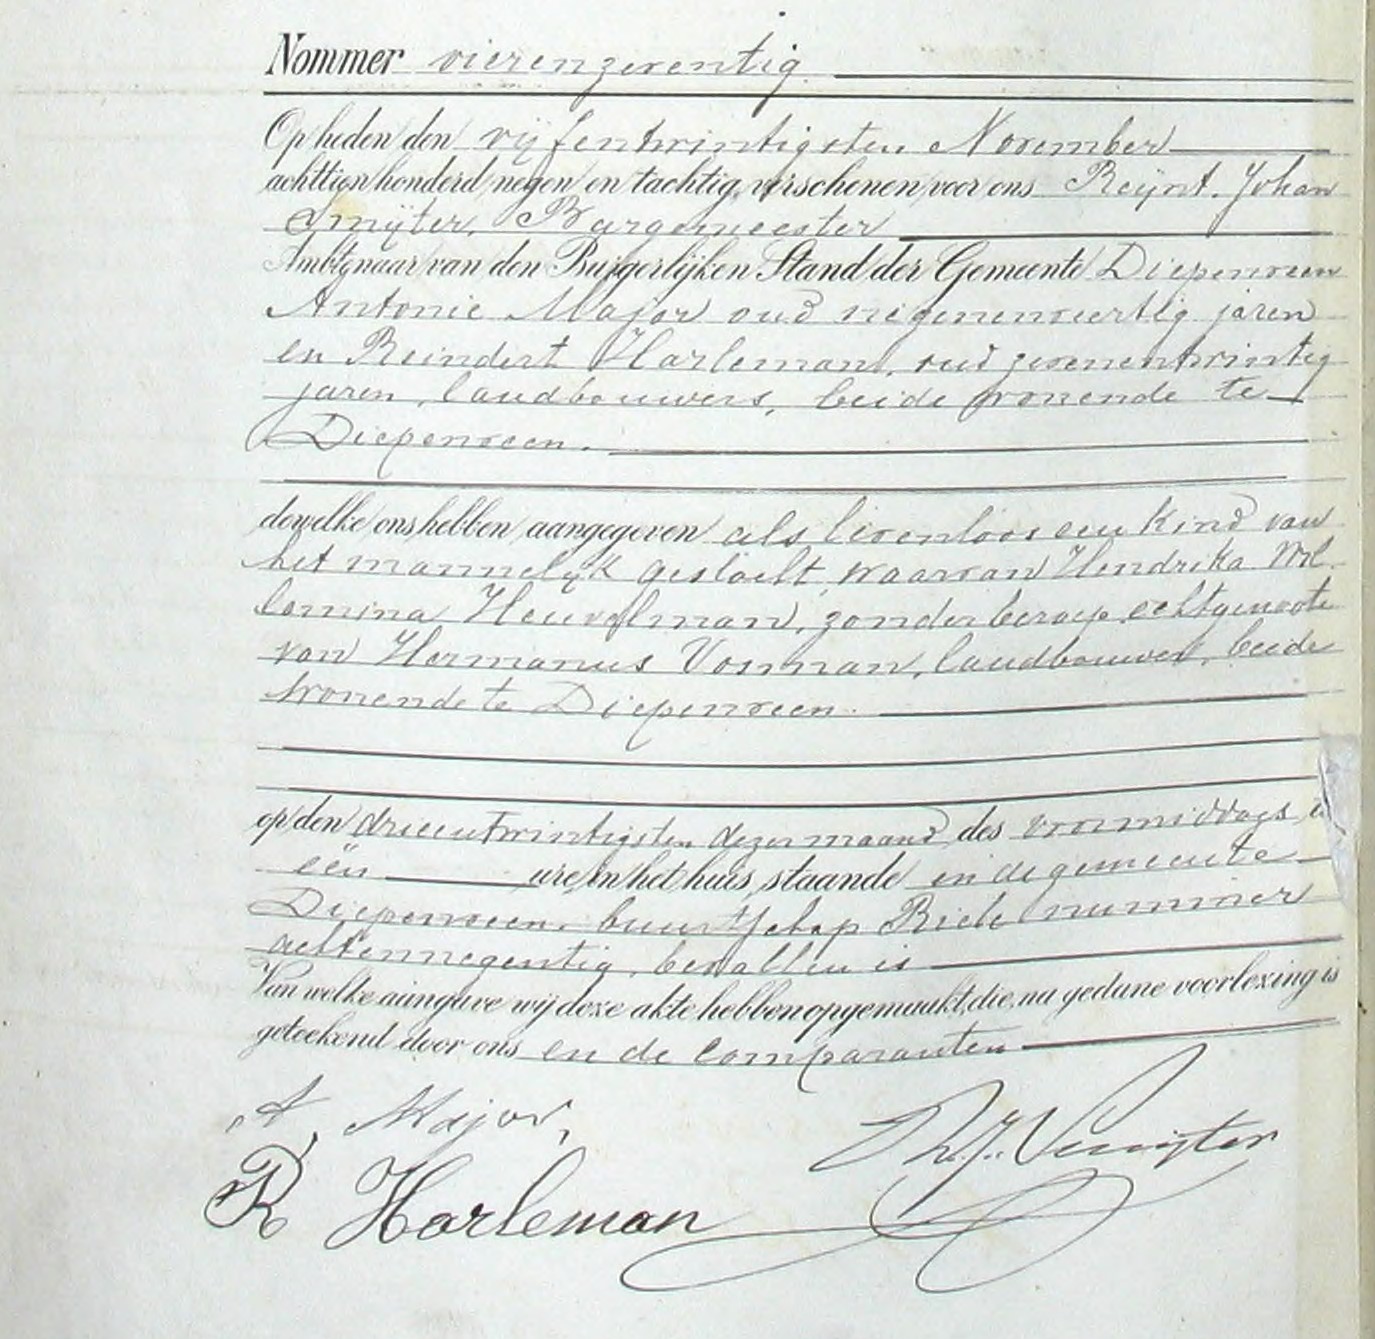 Nommer vierenzeventig
Op heden den vijfentwintigsten November
achttien honderd negen en tachtig, verschenen voor ons Reijnt. Johan
Smijter, Burgemeester
Ambtenaar van den Burgerlijken Stand der Gemeente Diepenveen
Antonie Major oud negenenveertig jaren
en Reindert Harleman, oud zevenentwintig
jaren, landbouwers, beide wonende te
Diepenveen.
dewelke ons hebben aangegeven als levenloos een kind van
het mannelijk geslacht, waarvan Hendrika Wil
lemina Heuvelman, zonder beroep, echtgenoote
van Hermanus Vosman, landbouwer, beide
wonende te Diepenveen.
op den drieentwintigsten dezer maand des voormiddags te
één ure in het huis, staande in de gemeente
Diepenveen, buurtschap Riele nummer
achtennegentig, bevallen is
Van welke aangave wij deze akte hebben opgemaakt, die, na gedane voorlezing is
geteekend door ons en de comparanten
A, Major, R.J. Smijter
R Harleman